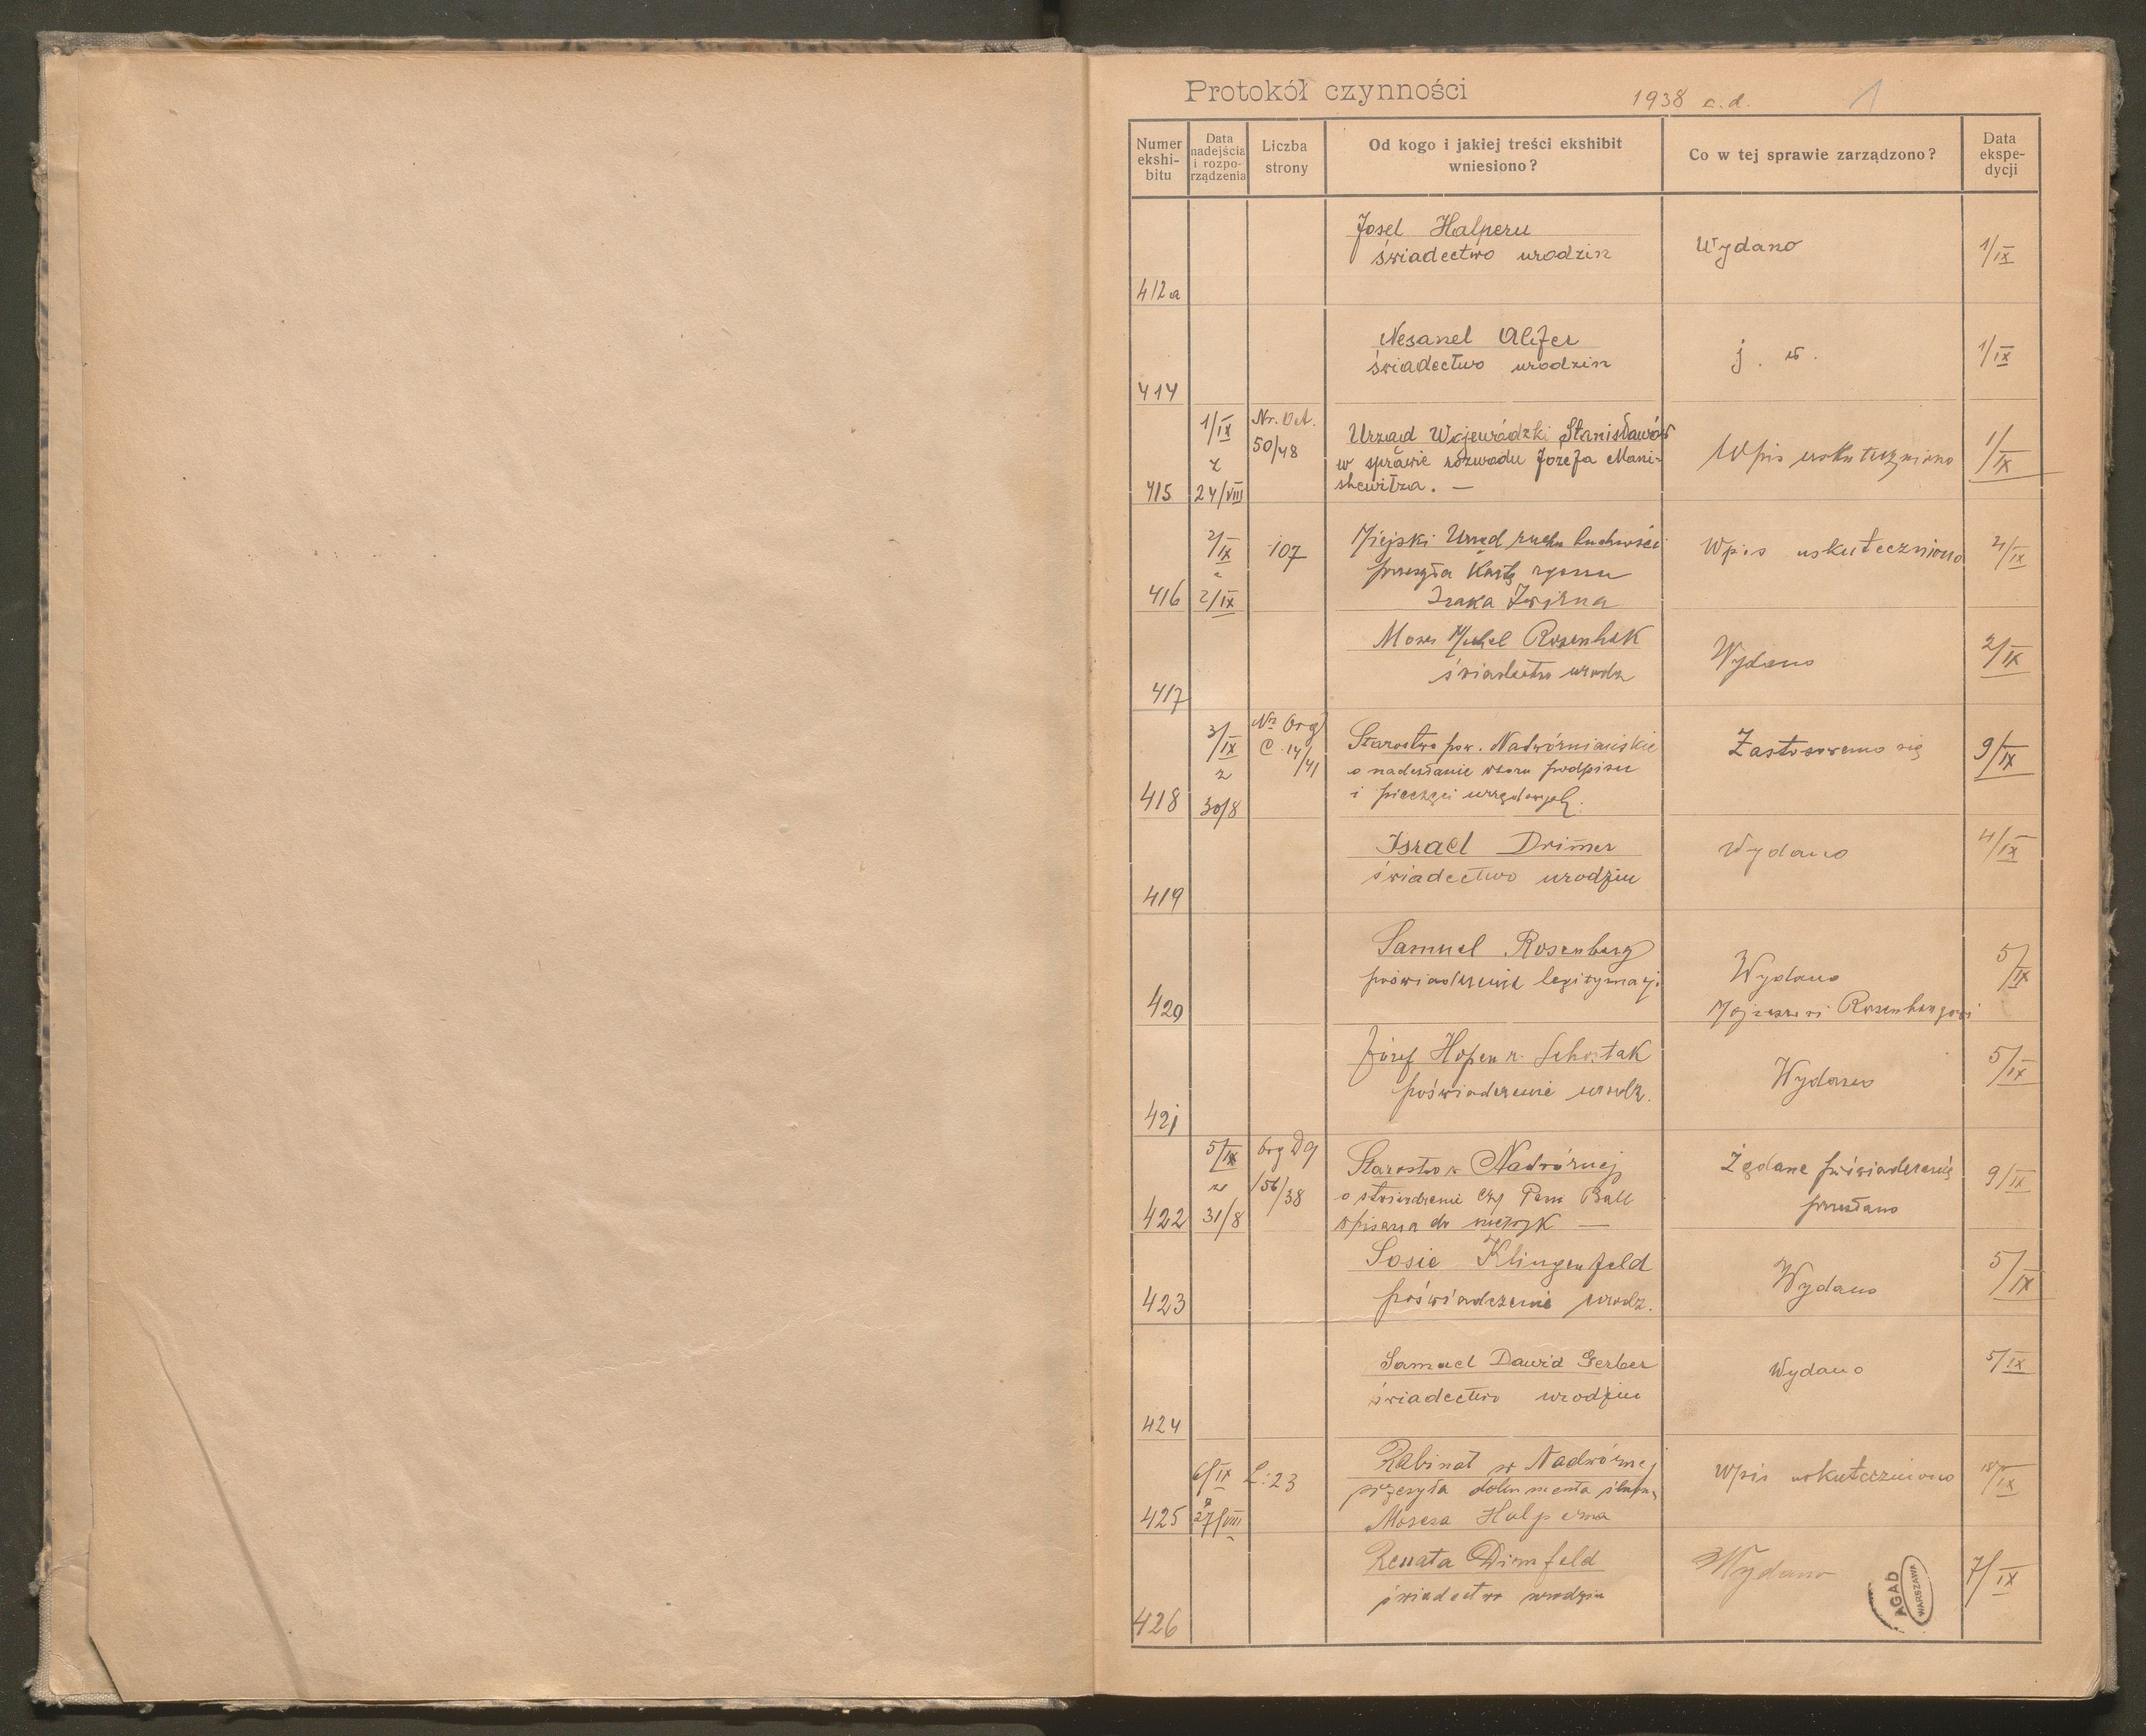 Protokół czynności 1938 c.d. 1
Numer ekshi-bitu
Data nadejścia i rozpo-rządzenia
Liczba strony
Od kogo i jakiej treści ekshibit wniesiono?
Co w tej sprawie zarządzono?
Data ekspe-dycji
Josel Halpern
świadectwo urodzin Wydano 1/IX
412a
Nesanel
świadectwo urodzin j. w. 1/IX
414
1/IX Nr.
50/48 Urząd Wojewódzki Stanisławów
z w sprawie rozwodu Józefa Mani- Wpis uskuteczniono 1/IX
415 24/VIII shewitza. —
2/IX 107 Miejski Urząd ruchu ludności Wpis uskuteczniono 2/IX
z przesyła Kartę zgonu
416 2/IX Izaka Zwirna
Moses Rosenhek
świadectwo urodz Wydano 2/IX
417
3/IX Nr Org
C 14/41 Starostwo pow. Nadwórniańskie Zastosowano się 9/IX
z o nadesłanie wzoru podpisu
418 30/8 i pieczęci urzędowych.
Israel Drimer Wydano 4/IX
świadectwo urodzin
419
Samuel Rosenberg
poświadczenie legitymacji Wydano 5/IX
420 Mojżeszowi Rosenbergowi
Józef Hopen r. Schostak
poświadczenie urodz. Wydano 5/IX
421
5/IX Org
Starostwo w Nadwórnej Żądane poświadczenie 9/IX
z 156/38 o stwierdzenie czy Ball przesłano
422 31/8 wpisana do metryk —
Sosie Klingenfeld
poświadczenie urodz. Wydano 5/IX
423
Samuel Dawid Gerber Wydano 5/IX
świadectwo urodzin
424
6/IX L:23 Rabinat w Nadwórnej Wpis uskuteczniono 18/IX
z przesyła dokumenta ślubu
425 27/VIII Mosesa Halperna
Renata Dirnfeld Wydano 7/IX
świadectwo urodzin
426
AGAD
WARSZAWA